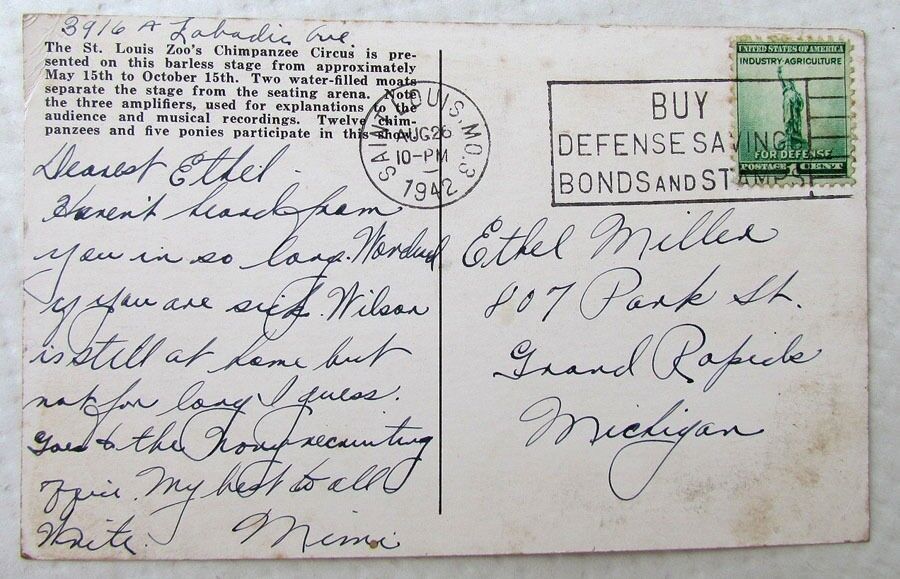 3916 A Labadie Ave.
The St. Louis Zoo's Chimpanzee Circus is pre-
sented on this barless stage from approximately
May 15th to October 15th. Two water-filled moats
separate the stage from the seating arena. Note
the three amplifiers, used for explanations to the
audience and musical recordings. Twelve chim-
panzees and five ponies participate in this show.
Dearest Ethel.
Haven't heard from
you in so long. Wondered
if you are sick. Wilson
is still at home but
not for long I guess.
Goes to the Navy recruiting
office. My best to all
Write. Mimi
SAINT LOUIS, MO. 3
AUG 26
10-PM
1942
BUY
DEFENSE SAVINGS
BONDS AND STAMPS
UNITED STATES OF AMERICA
INDUSTRY-AGRICULTURE
FOR DEFENSE
POSTAGE 1 CENT
Ethel Miller
807 Park St.
Grand Rapids
Michigan